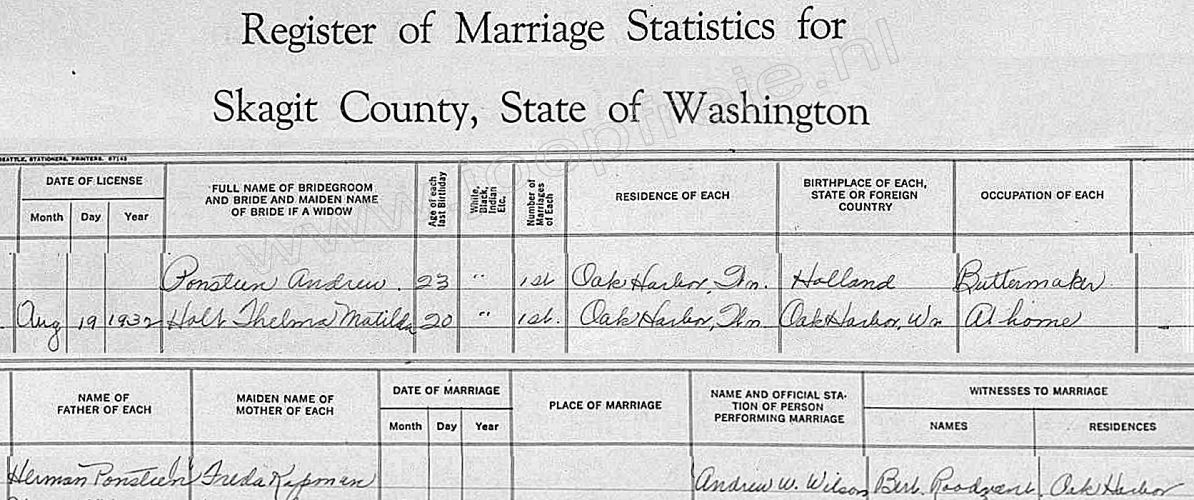 Register of Marriage Statistics for
Skagit County, State of Washington
www.toopfinie.nl
SEATTLE, STATIONERS, PRINTERS. 67143
DATE OF LICENSE
Month Day Year
FULL NAME OF BRIDEGROOM
AND BRIDE AND MAIDEN NAME
OF BRIDE IF A WIDOW
Age of each
last Birthday
White,
Black,
Indian
Etc.
Number of
Marriages
of Each
RESIDENCE OF EACH
BIRTHPLACE OF EACH,
STATE OR FOREIGN
COUNTRY
OCCUPATION OF EACH
Ponsteen Andrew. 23 " 1st Oak Harbor, Wn. Holland Buttermaker
Aug 19 1932 Holt Thelma Matilda 20 " 1st. Oak Harbor, Wn Oak Harbor, Wn At home
NAME OF
FATHER OF EACH
MAIDEN NAME OF
MOTHER OF EACH
DATE OF MARRIAGE
Month Day Year
PLACE OF MARRIAGE
NAME AND OFFICIAL STA-
TION OF PERSON
PERFORMING MARRIAGE
WITNESSES TO MARRIAGE
NAMES RESIDENCES
Herman Ponsteen Freda Kapman Andrew W. Wilson Bert Oak Harbor